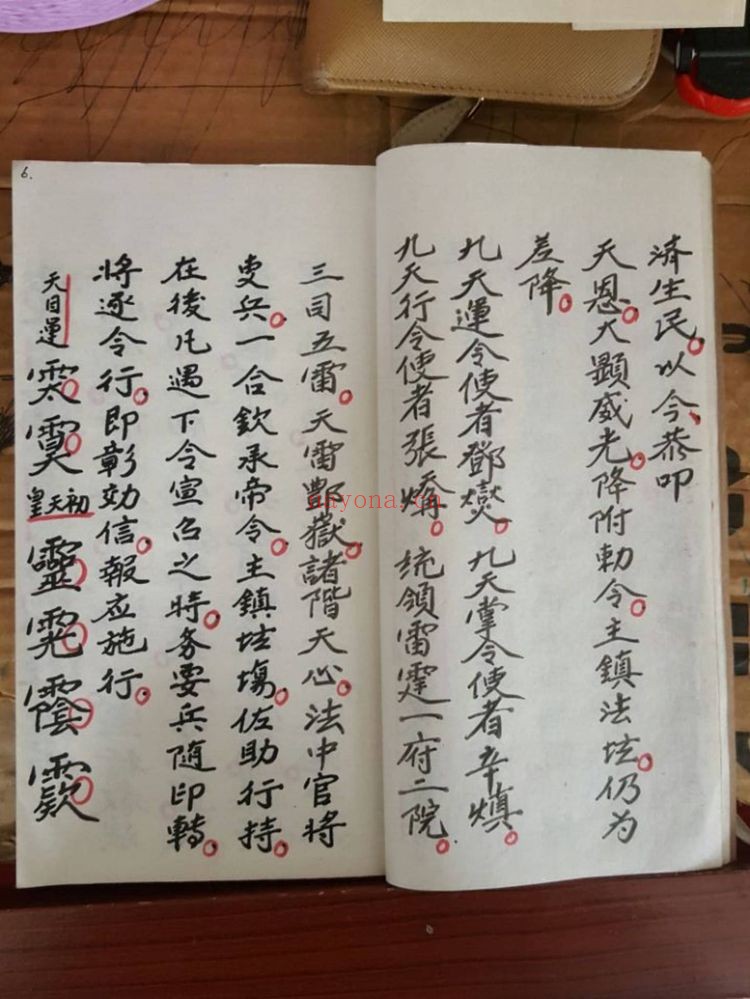 濟生民。以今恭叩
天恩。大顯威光。降附勅令。主鎮法坛。仍为
差降。
九天運令使者鄧燮。九天掌令使者辛慎。
九天行令使者張燏。統領雷霆一府二院。
三司五雷。天雷酆嶽。諸階天心。法中官将
吏兵。一合欽承帝令。主鎮坛場。佐助行持。
在後凡遇下令宣召之時。务要兵随印轉。
将逐令行。即彰効信。報应施行。
天日運
皇天初
6.